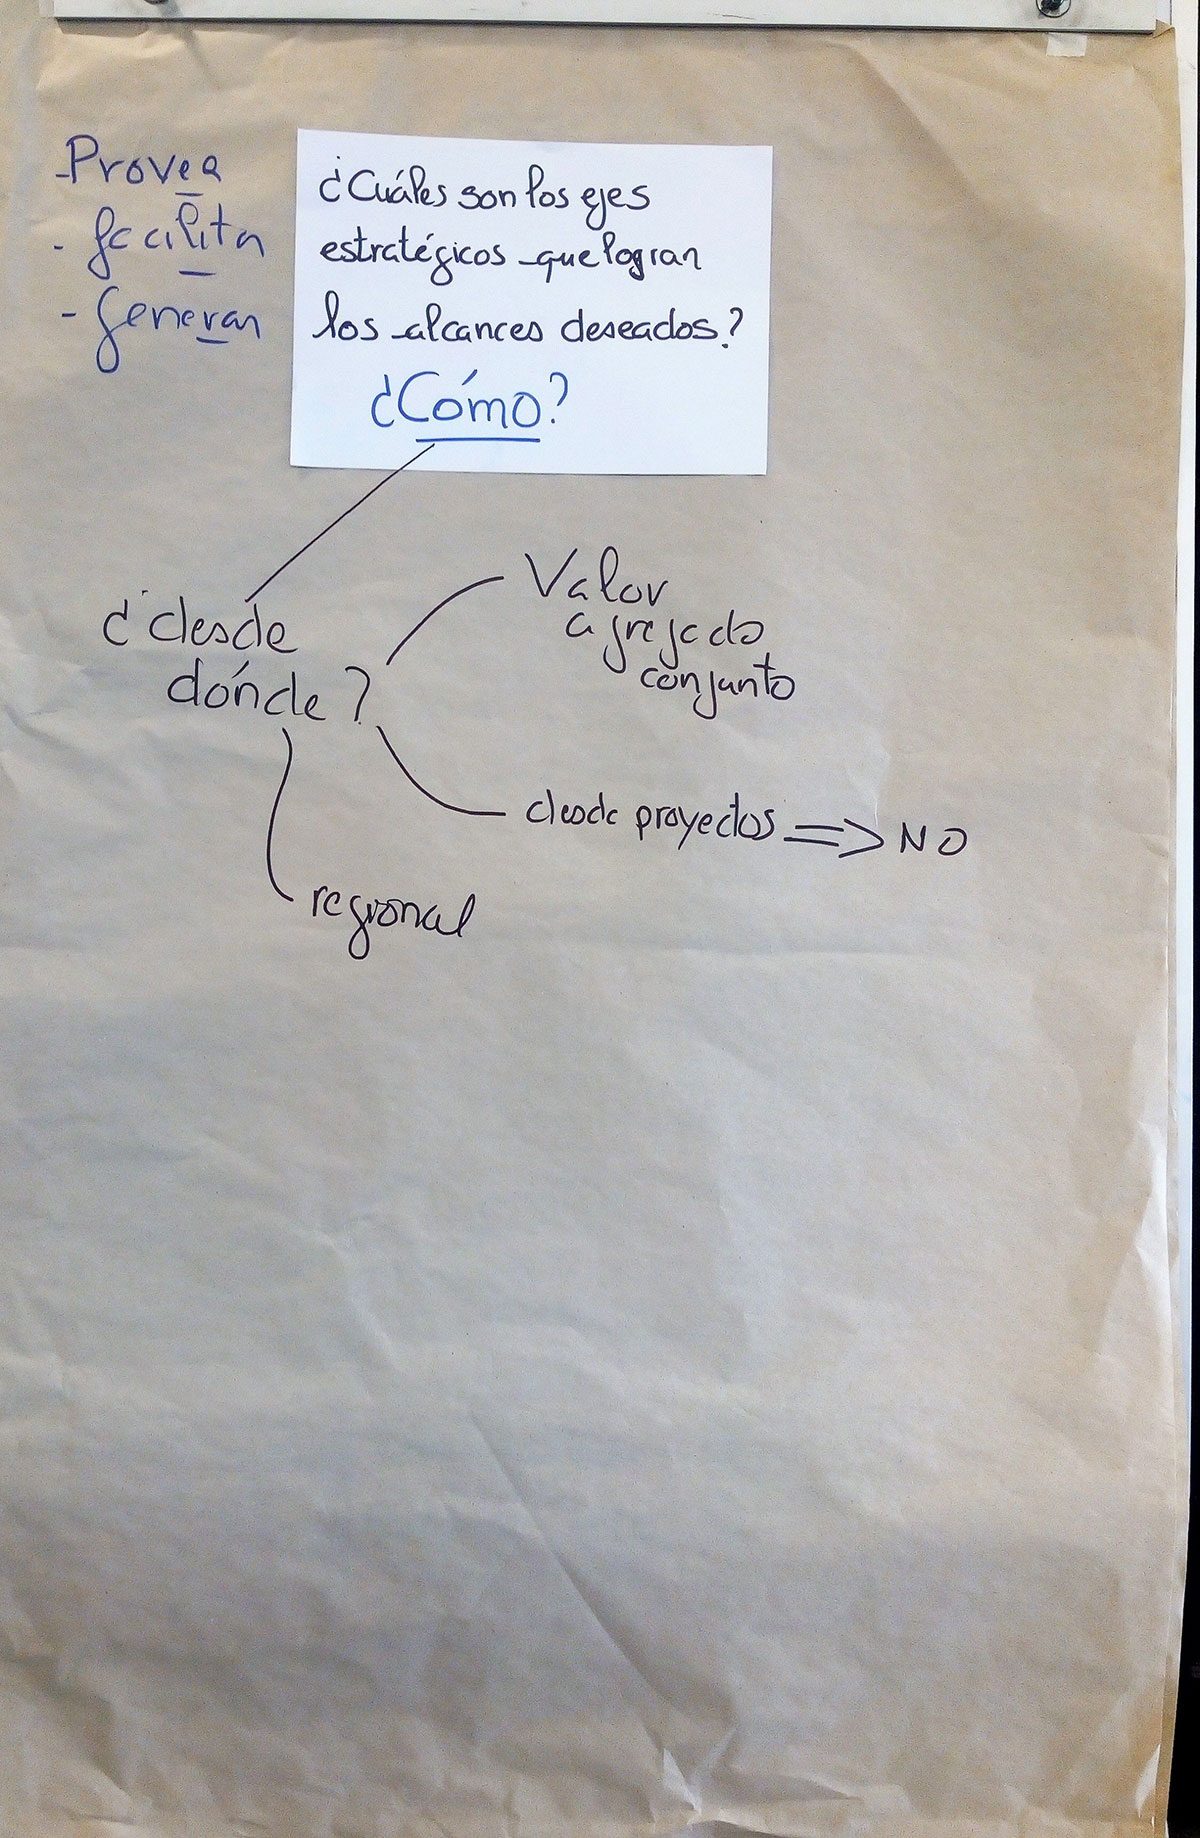 - Provea
- facilita
- Generar
¿Cuáles son los ejes
estratégicos que logran
los alcances deseados?
¿Cómo?
¿desde
dónde?
Valor
agregado
conjunto
desde proyectos => NO
regional